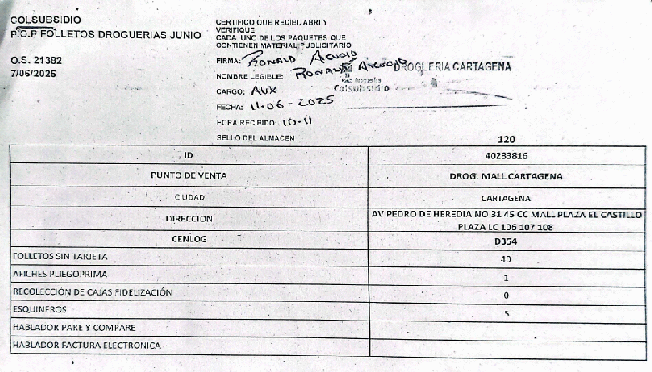 COLSUBSIDIO
P.O.P FOLLETOS DROGUERIAS JUNIO
O.S. 21382
7/06/2025
CERTIFICO QUE RECIBI, ABRI Y
VERIFIQUE
CADA UNO DE LOS PAQUETES QUE
CONTIENEN MATERIAL PUBLICITARIO
FIRMA: Ronald
NOMBRE LEGIBLE: Ronald
DROGUERIA CARTAGENA
Colsubsidio
CARGO: Aux
FECHA: 11-06-2025
HORA RECIBIDO
SELLO DEL ALMACEN
120
ID 40233816
PUNTO DE VENTA DROG. MALL CARTAGENA
CIUDAD CARTAGENA
DIRECCION AV PEDRO DE HEREDIA NO 31 45 CC MALL PLAZA EL CASTILLO
PLAZA LC 106 107 108
CENLOG D354
FOLLETOS SIN TARJETA
AFICHES PLIEGO PRIMA 1
RECOLECCIÓN DE CAJAS FIDELIZACIÓN 0
ESQUINEROS 5
HABLADOR PARE Y COMPARE
HABLADOR FACTURA ELECTRONICA